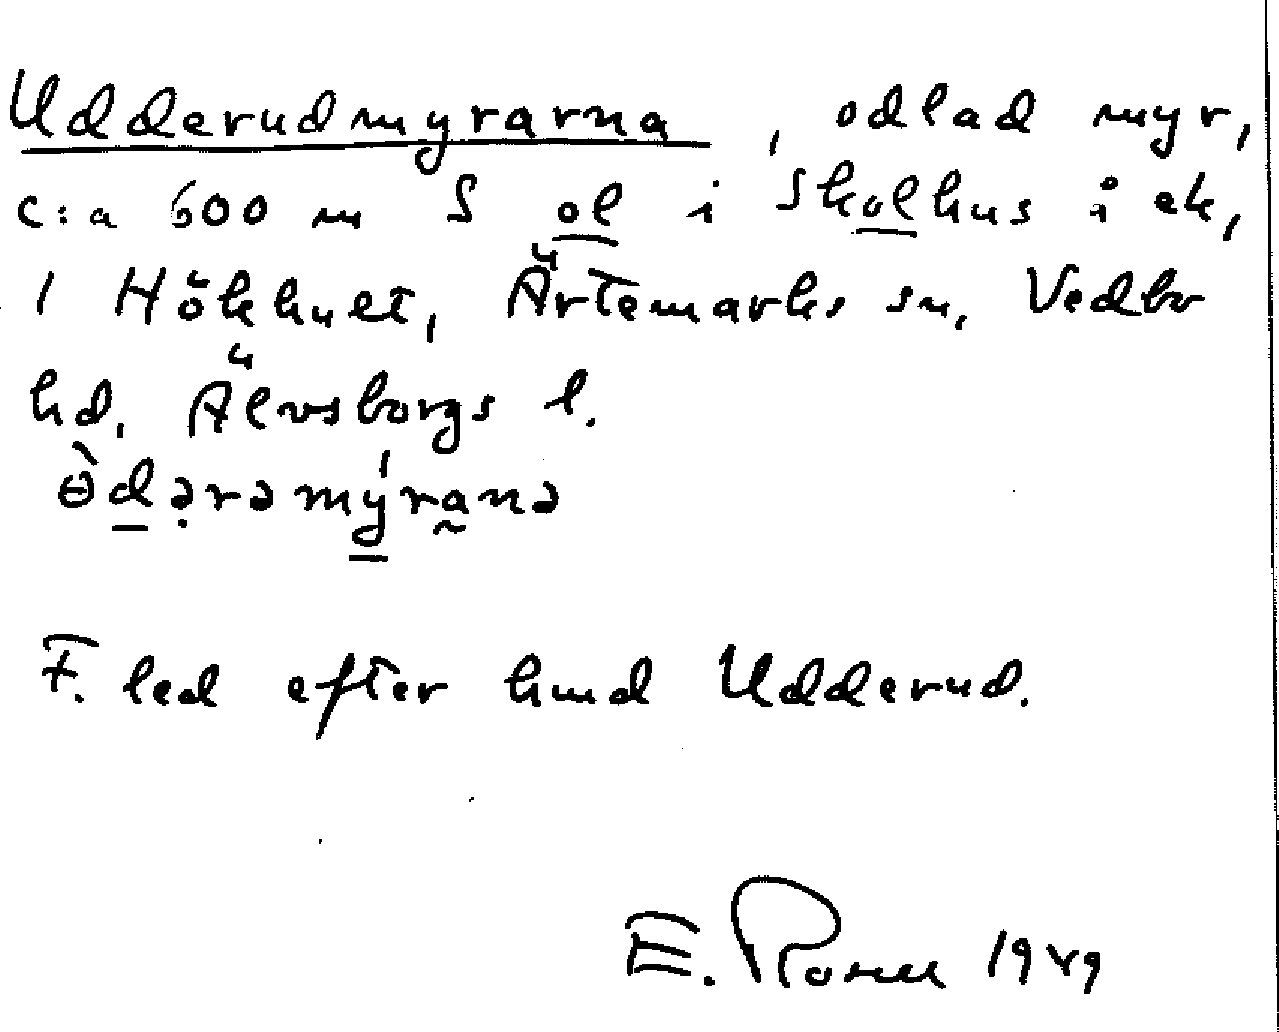 Udderudmyrarna, odlad myr,
c:a 600 m S ol i Skolhus å ek,
1 Hökhult, Ärtemarks sn, Vedbo
hd, Älvsborgs l.
Ѳ̀dərəmýranə
F. led efter hmd Udderud.
E. Rosell 1949